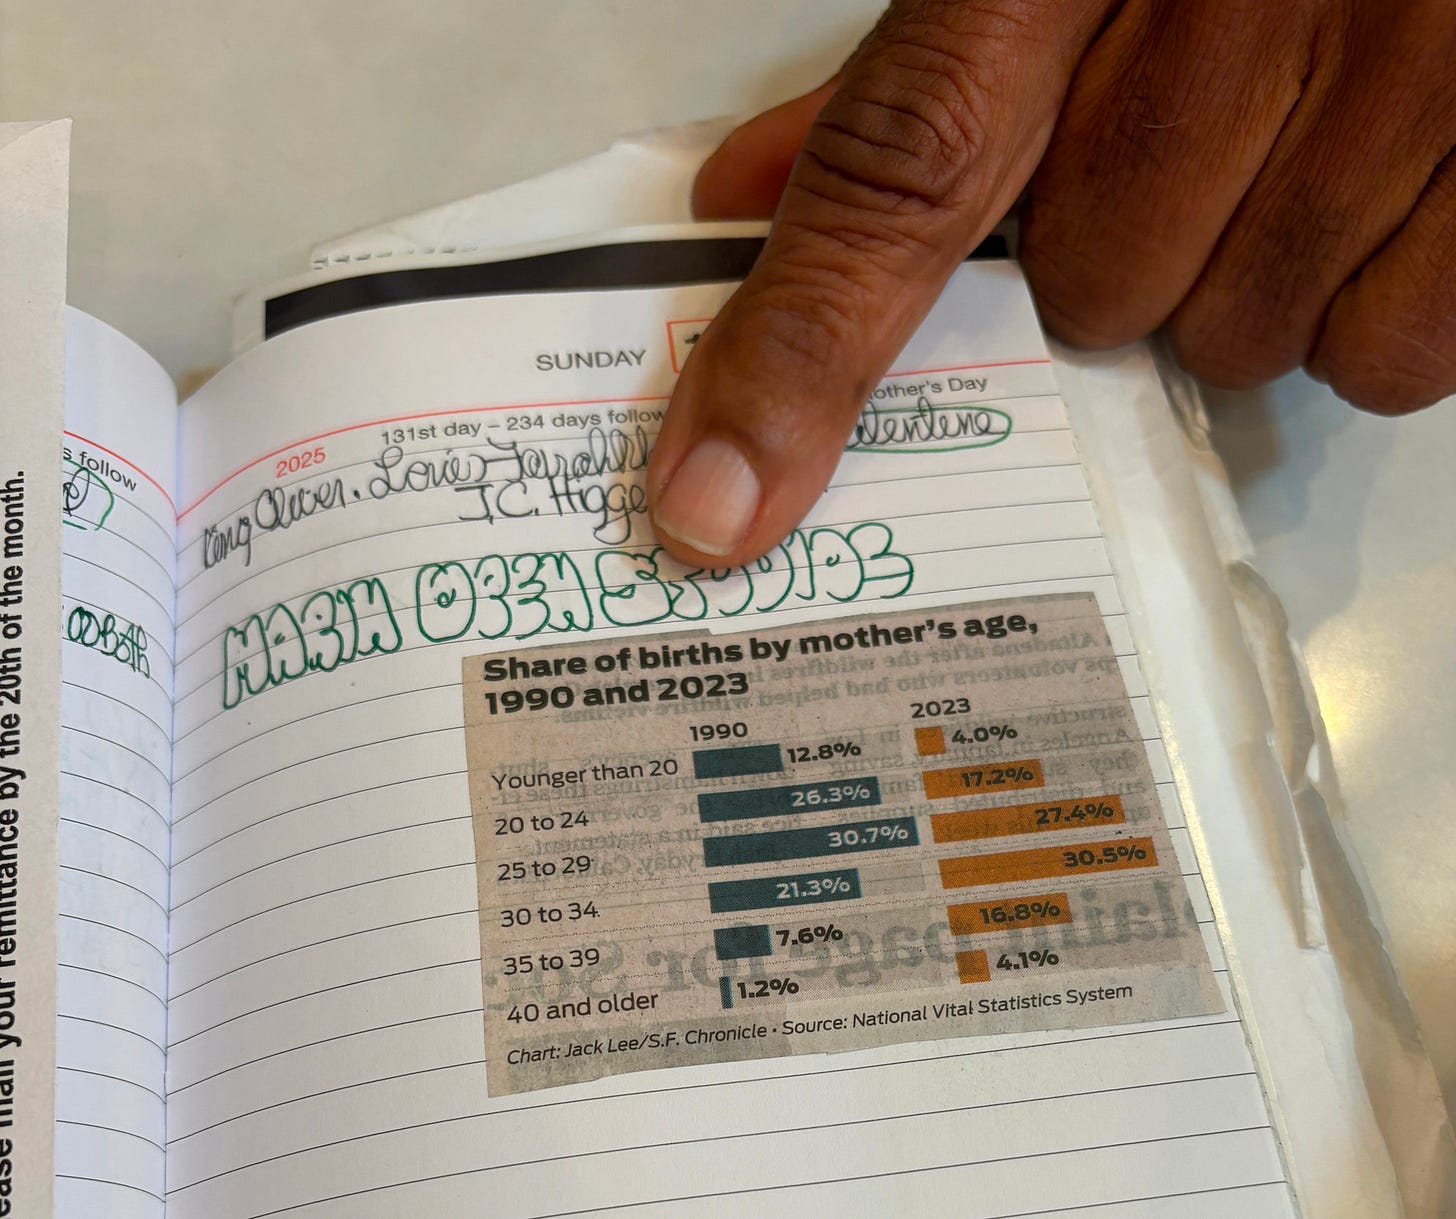 ease mail your remittance by the 20th of the month.
s follow
SUNDAY
131st day – 234 days follow
other's Day
2025
King Oliver. Louis
J.C. Higge
OPEN
Share of births by mother's age,
1990 and 2023
1990 2023
Younger than 20 12.8% 4.0%
20 to 24 26.3% 17.2%
25 to 29 30.7% 27.4%
30 to 34 21.3% 30.5%
35 to 39 7.6% 16.8%
40 and older 1.2% 4.1%
Chart: Jack Lee/S.F. Chronicle • Source: National Vital Statistics System